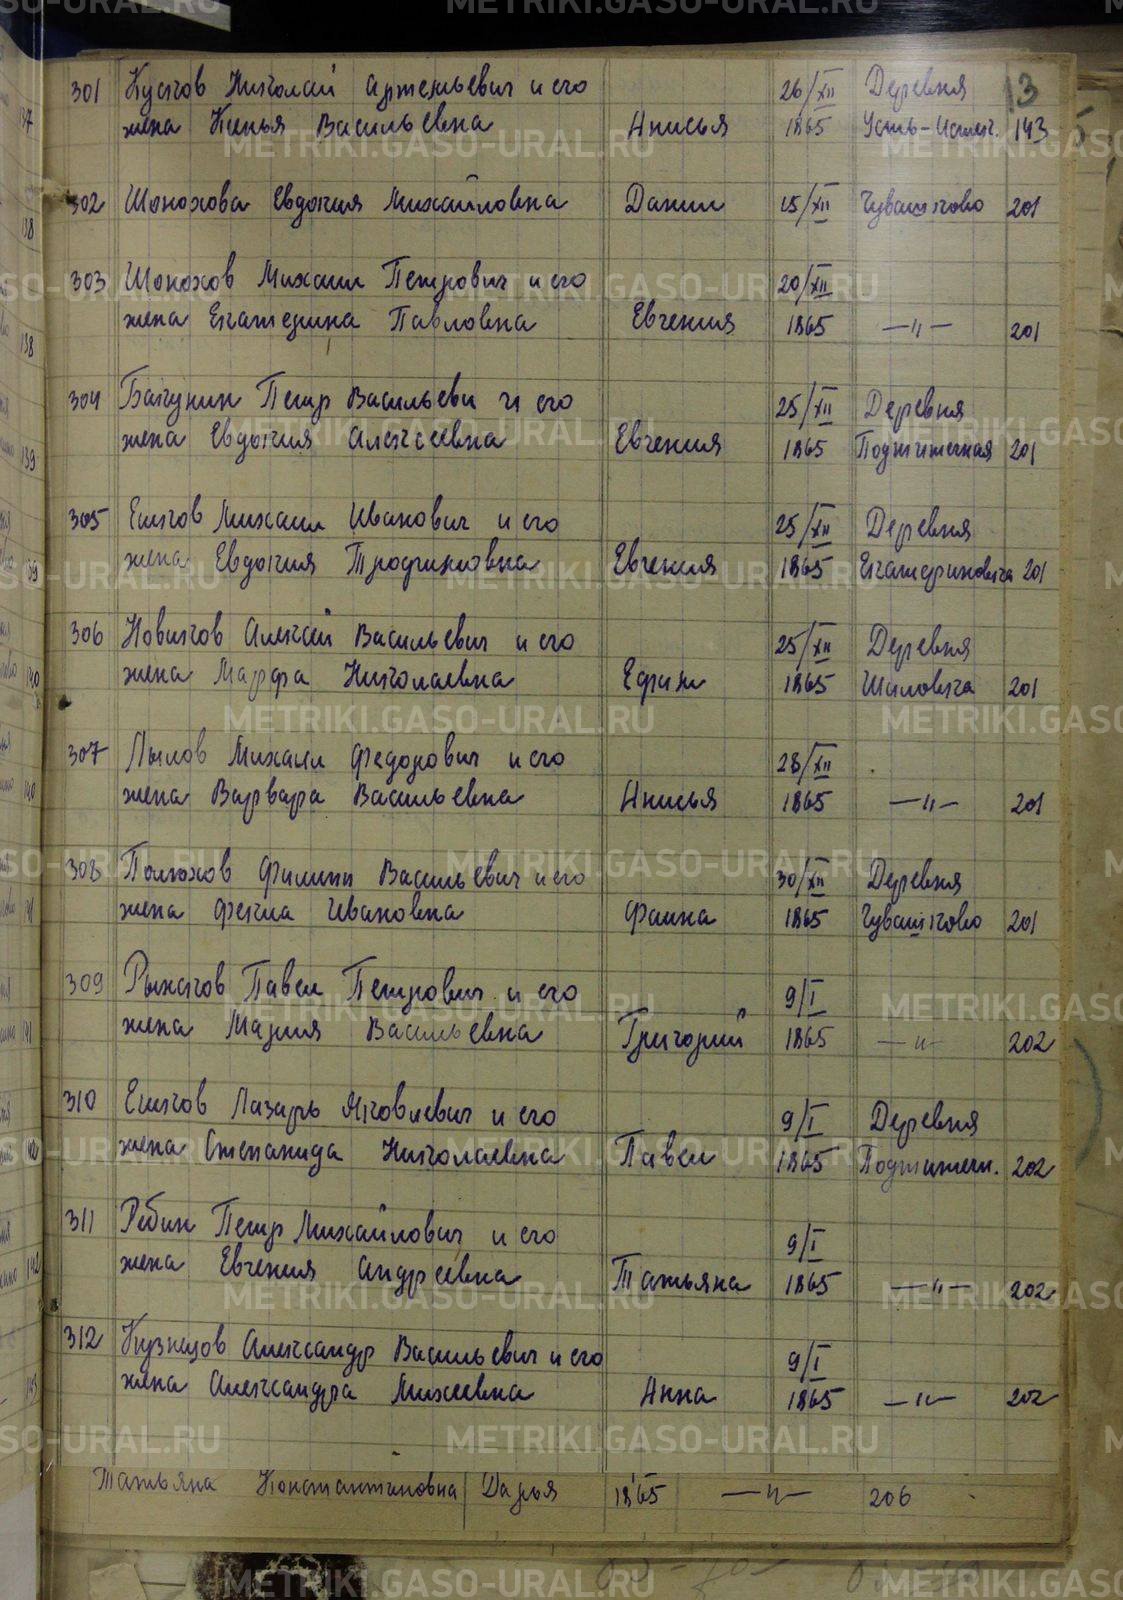 13
301 Кусков Николай Артемьевич и его 26/XII Деревня
жена Васильевна Анисья 1865 Усть- 143
302 Шонохова Евдокия Михайловна Данил 15/XII Чувашково 201
303 Шонохов Михаил Петрович и его 20/XII
жена Екатерина Павловна Евгения 1865 —"— 201
304 Бакунин Петр Васильеви и его 25/XII Деревня
жена Евдокия Алексеевна Евгения 1865 201
305 Елисков Михаил Иванович и его 25/XII Деревня
жена Евдокия Евгения 1865 201
306 Новиков Алексей Васильевич и его 25/XII Деревня
жена Марфа Николаевна Ефим 1865 Шиловка 201
307 Пылов Михаил Федорович и его 28/XII
жена Варвара Васильевна Анисья 1865 —"— 201
308 Филипп Васильевич и его 30/XII Деревня
жена Фекла Ивановна Фаина 1865 Чувашково 201
309 Павел Петрович и его 9/I
жена Мария Васильевна Григорий 1865 —"— 202
310 Лазарь Яковлевич и его 9/I Деревня
жена Степанида Николаевна Павел 1865 202
311 Рябин Петр Михайлович и его 9/I
жена Евгения Андреевна Татьяна 1865 —"— 202
312 Кузнецов Александр Васильевич и его 9/I
жена Александра Михеевна Анна 1865 —"— 202
Татьяна Константиновна Дарья 1865 —"— 206
METRIKI.GASO-URAL.RU